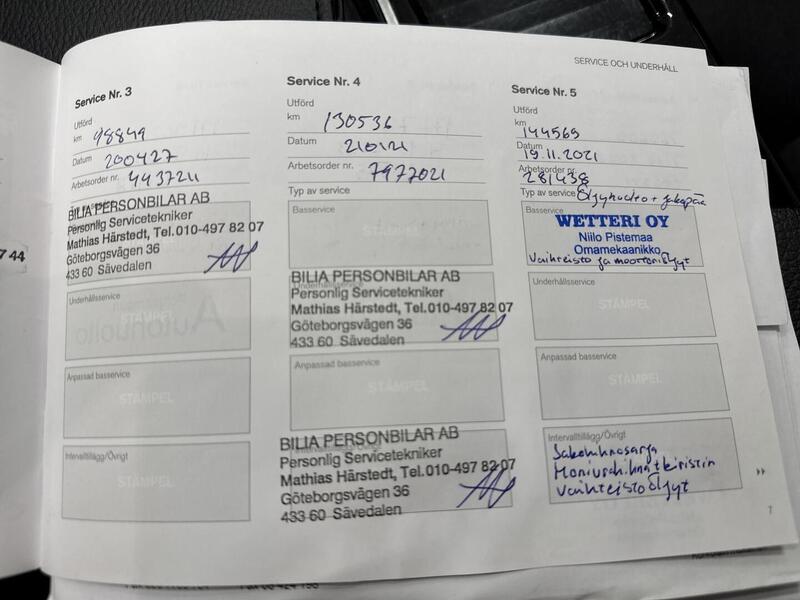 SERVICE OCH UNDERHÅLL
Service Nr. 3
Utförd
km 98849
Datum 200427
Arbetsorder nr. 4437211
BILIA PERSONBILAR AB
Personlig Servicetekniker
Mathias Härstedt, Tel.010-497 82 07
Göteborgsvägen 36
433 60 Sävedalen
Underhållsservice
STÄMPEL
Anpassad basservice
STÄMPEL
Intervalltillägg/Övrigt
STÄMPEL
Service Nr. 4
Utförd
km 130536
Datum 210121
Arbetsorder nr. 7977021
Typ av service
Basservice
STÄMPEL
BILIA PERSONBILAR AB
Personlig Servicetekniker
Mathias Härstedt, Tel.010-497 82 07
Göteborgsvägen 36
433 60 Sävedalen
Anpassad basservice
STÄMPEL
BILIA PERSONBILAR AB
Personlig Servicetekniker
Mathias Härstedt, Tel.010-497 82 07
Göteborgsvägen 36
433 60 Sävedalen
Service Nr. 5
Utförd
km 144569
Datum 19.11.2021
Arbetsorder nr. 281438
Typ av service Öljyhuolto + jakopää
Basservice
WETTERI OY
Niilo Pistemaa
Omamekaanikko
Vaihteisto ja moottoriöljyt
Underhållsservice
STÄMPEL
Anpassad basservice
STÄMPEL
Intervalltillägg/Övrigt
Jakohihnasarja
Moniurahihna + kiristin
Vaihteistoöljyt
7
744